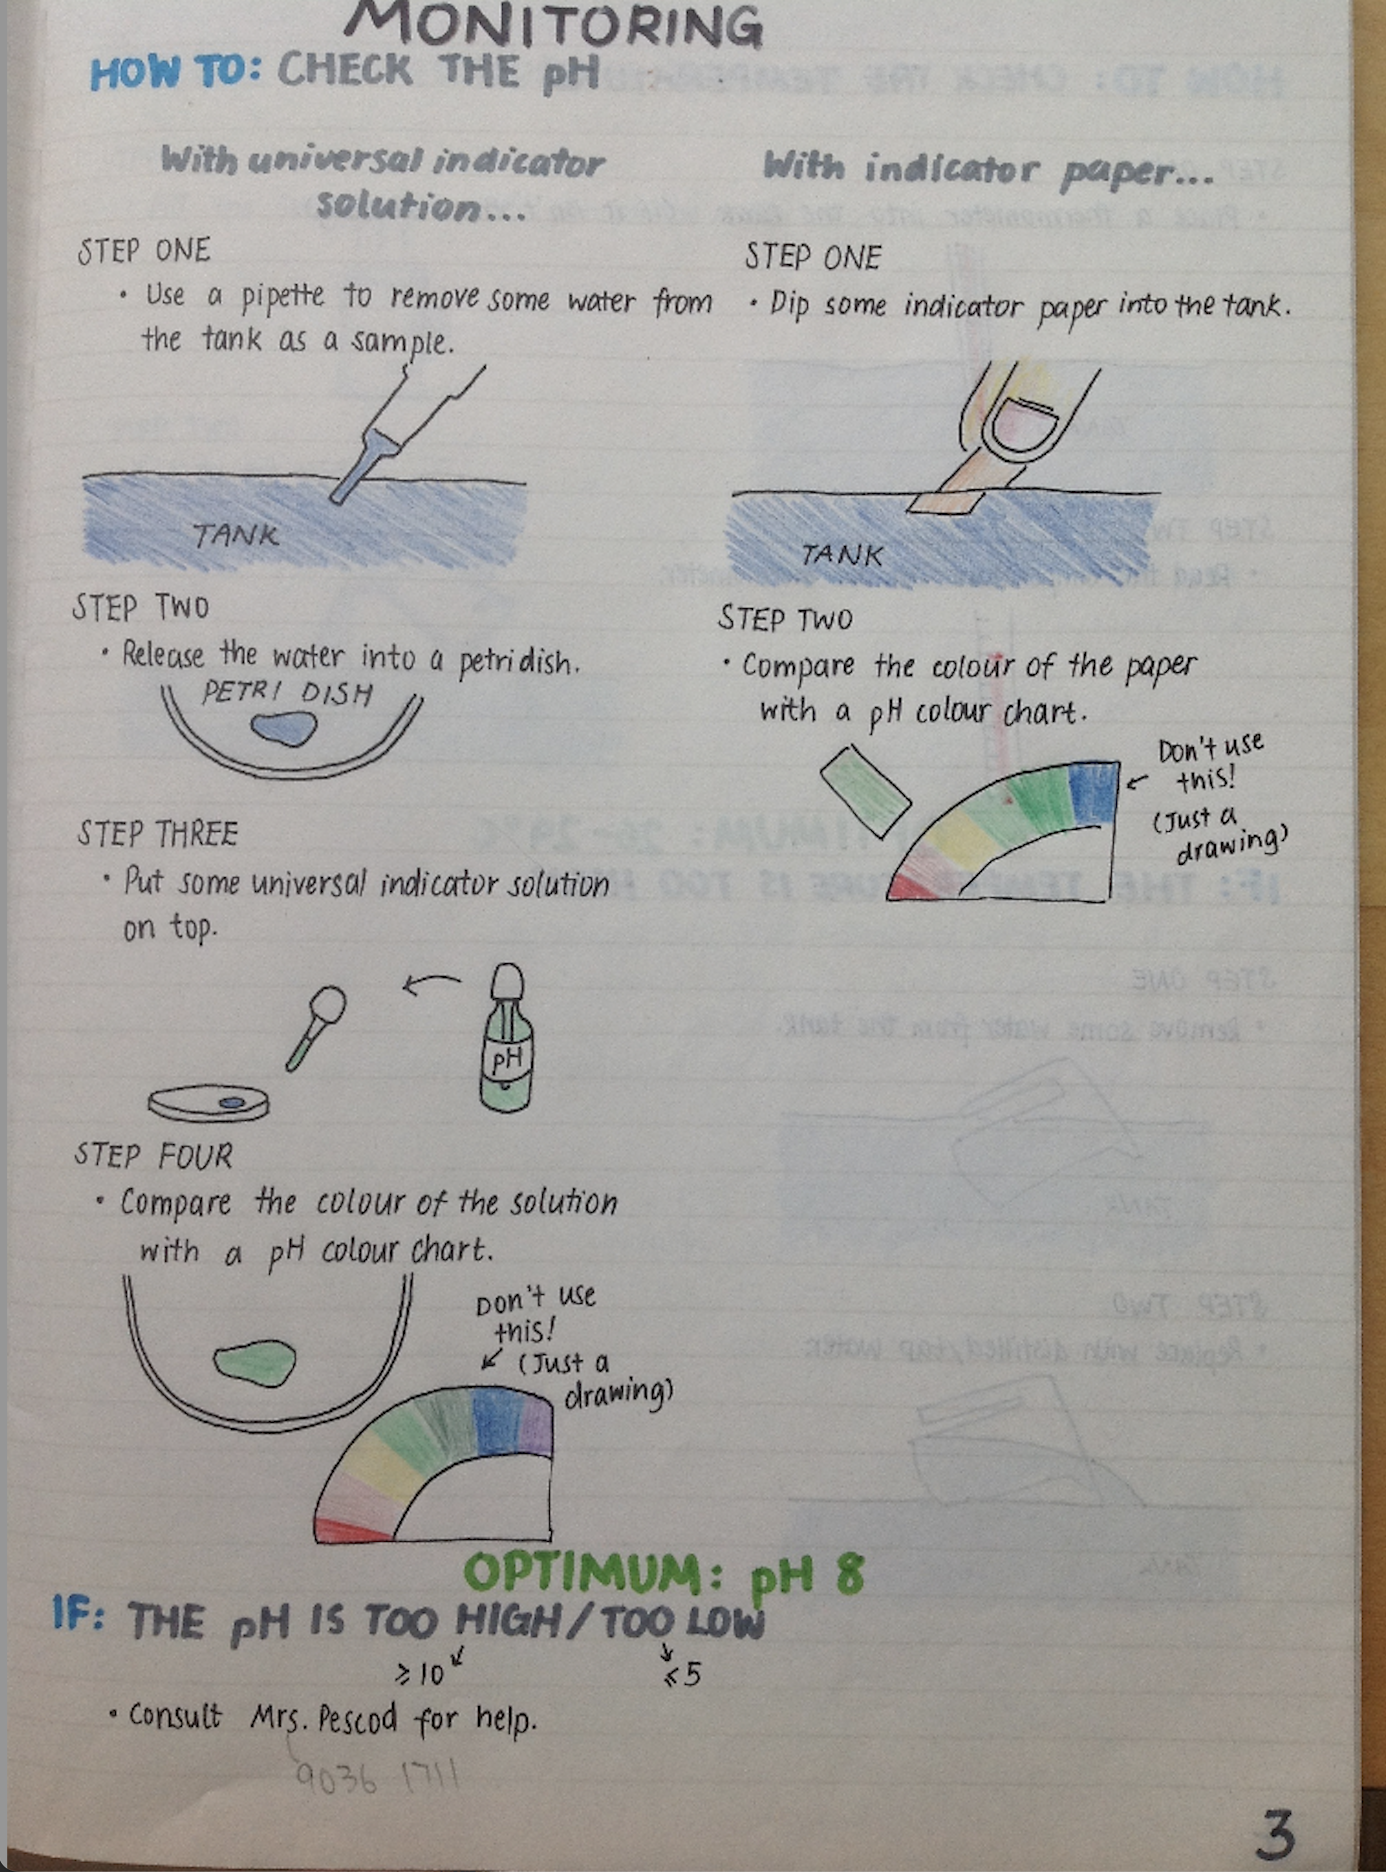 MONITORING
HOW TO: CHECK THE pH
With universal indicator
solution...
STEP ONE
• Use a pipette to remove some water from
the tank as a sample.
TANK
STEP TWO
• Release the water into a petri dish.
PETRI DISH
STEP THREE
• Put some universal indicator solution
on top.
pH
STEP FOUR
• Compare the colour of the solution
with a pH colour chart.
Don't use
this!
(Just a
drawing)
With indicator paper...
STEP ONE
• Dip some indicator paper into the tank.
TANK
STEP TWO
• Compare the colour of the paper
with a pH colour chart.
Don't use
this!
(Just a
drawing)
OPTIMUM: pH 8
IF: THE pH IS TOO HIGH/TOO LOW
≥10
≤5
• Consult Mrs. Pescod for help.
9036 1711
3